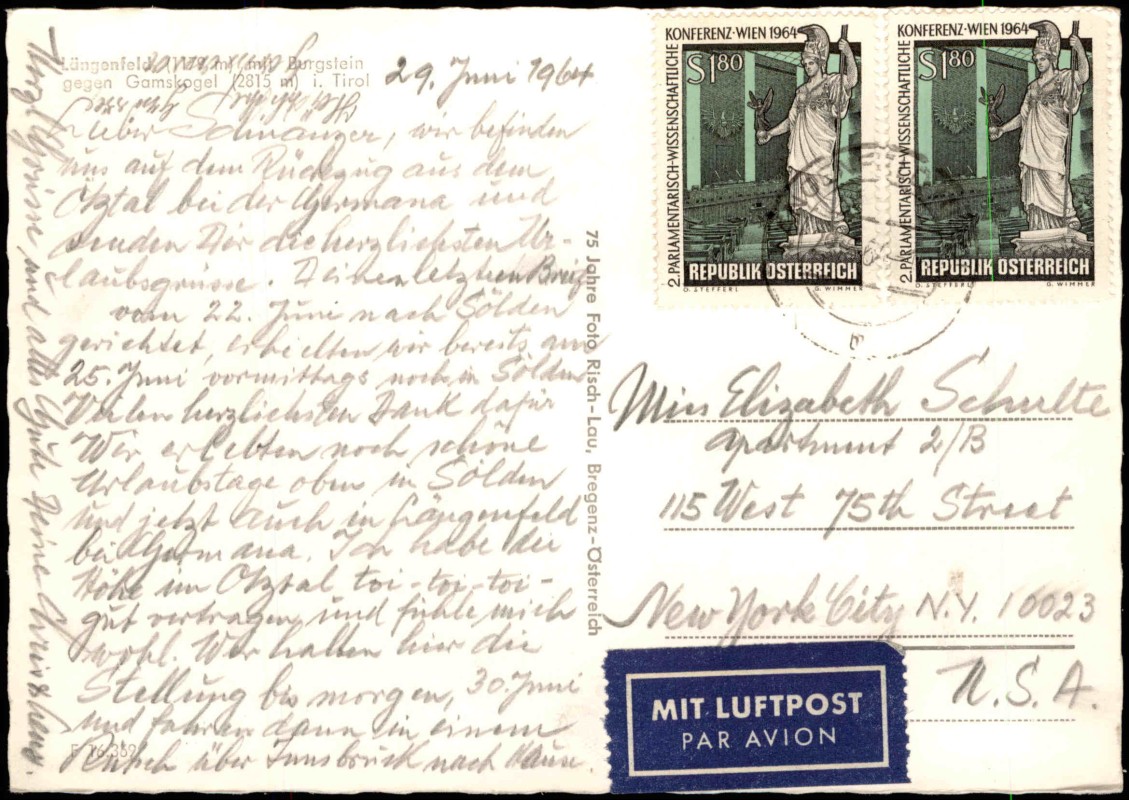 Längenfeld (1179 m) mit Burgstein
gegen Gamskogel (2815 m) i. Tirol
29. Juni 1964
Lieber Schwanzer, wir befinden
uns auf dem Rückzug aus dem
Ötztal bei der Germana und
senden Dir die herzlichsten Ur-
laubsgrüsse. Deinen letzten Brief
vom 22. Juni nach Sölden
gerichtet, erhielten wir bereits am
25. Juni vormittags noch in Sölden
Vielen herzlichsten Dank dafür
Wir erlebten noch schöne
Urlaubstage oben in Sölden
und jetzt auch in Längenfeld
bei Germana. Ich habe die
Höhe im Ötztal toi-toi-toi-
gut vertragen und fühle mich
wohl. Wir halten hier die
Stellung bis morgen, 30. Juni
und fahren dann in einem
Rutsch über Innsbruck nach Hause.
Grüsse und alles Gute Deine
E 16.359
75 Jahre Foto Risch-Lau, Bregenz-Österreich
2. PARLAMENTARISCH-WISSENSCHAFTLICHE
KONFERENZ·WIEN 1964
S1.80
REPUBLIK ÖSTERREICH
O. STEFFERL G. WIMMER
2. PARLAMENTARISCH-WISSENSCHAFTLICHE
KONFERENZ·WIEN 1964
S1.80
REPUBLIK ÖSTERREICH
O. STEFFERL G. WIMMER
Miss Elizabeth Schulte
apartment 2/B
115 West 75th Street
New York City N.Y. 10023
U.S.A.
MIT LUFTPOST
PAR AVION